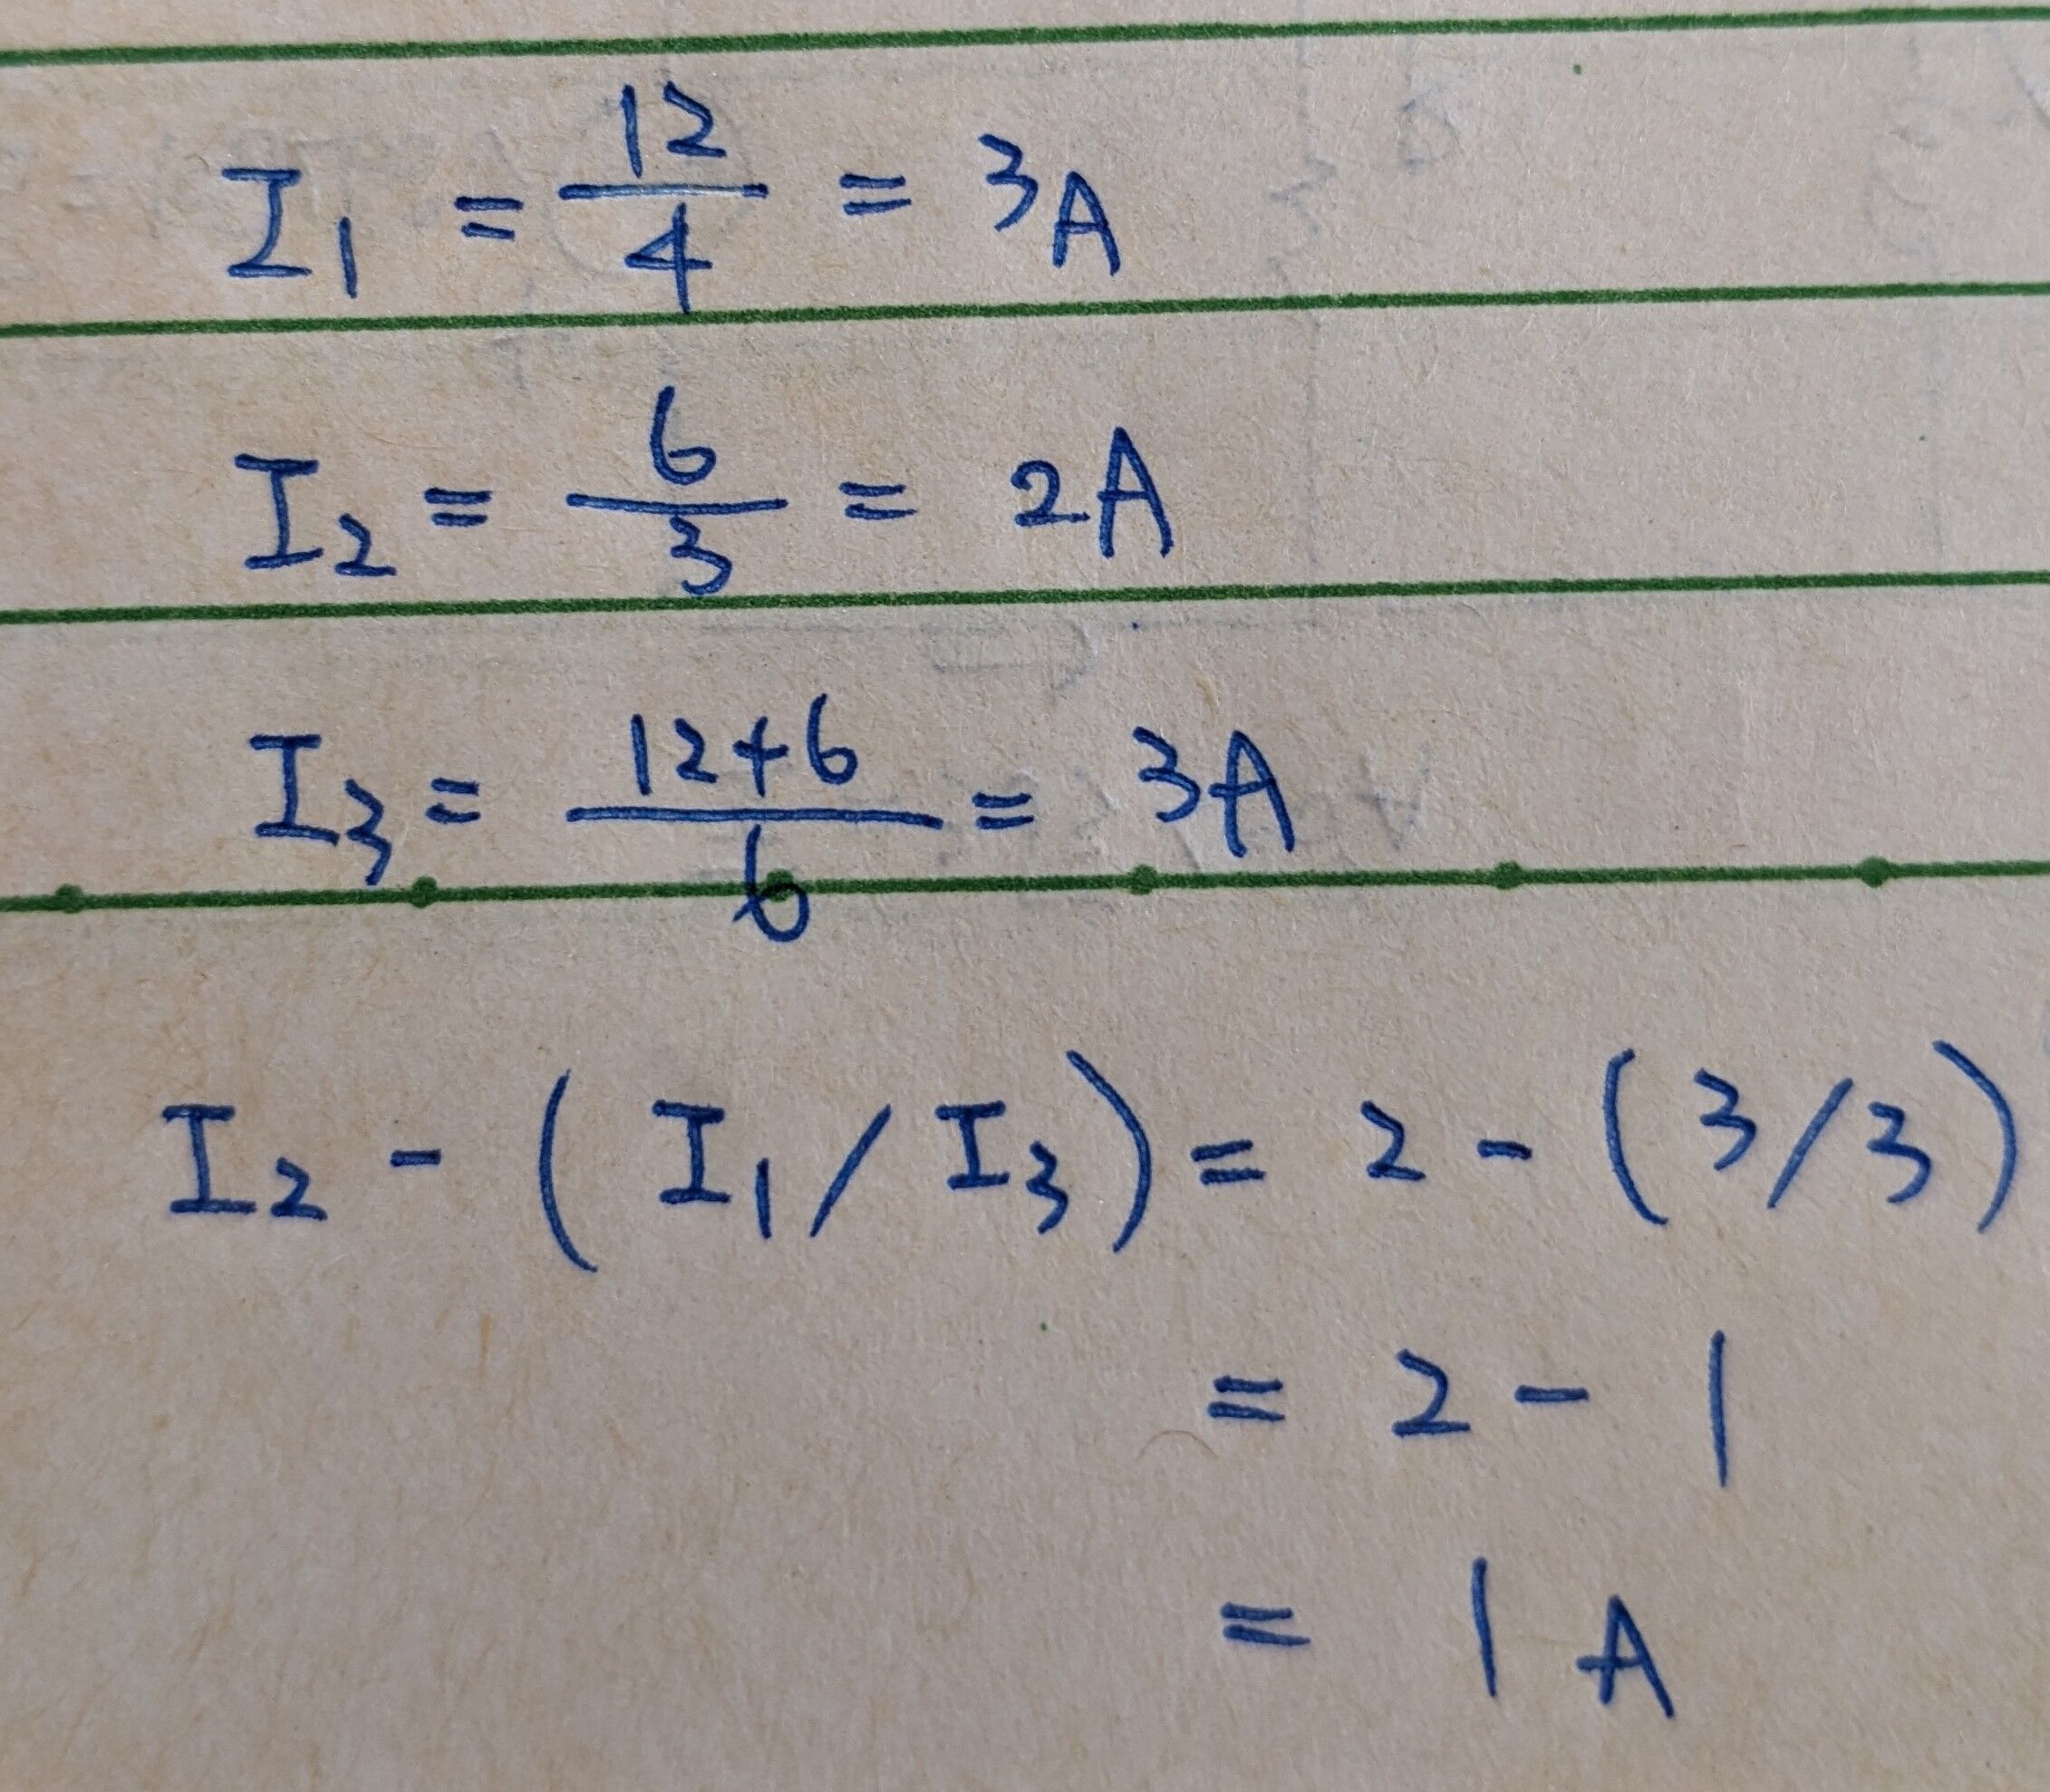 I₁ = 12/4 = 3A
I₂ = 6/3 = 2A
I₃ = 12+6/6 = 3A
I₂ - ( I₁ / I₃ ) = 2 - ( 3/3 )
= 2 - 1
= 1 A